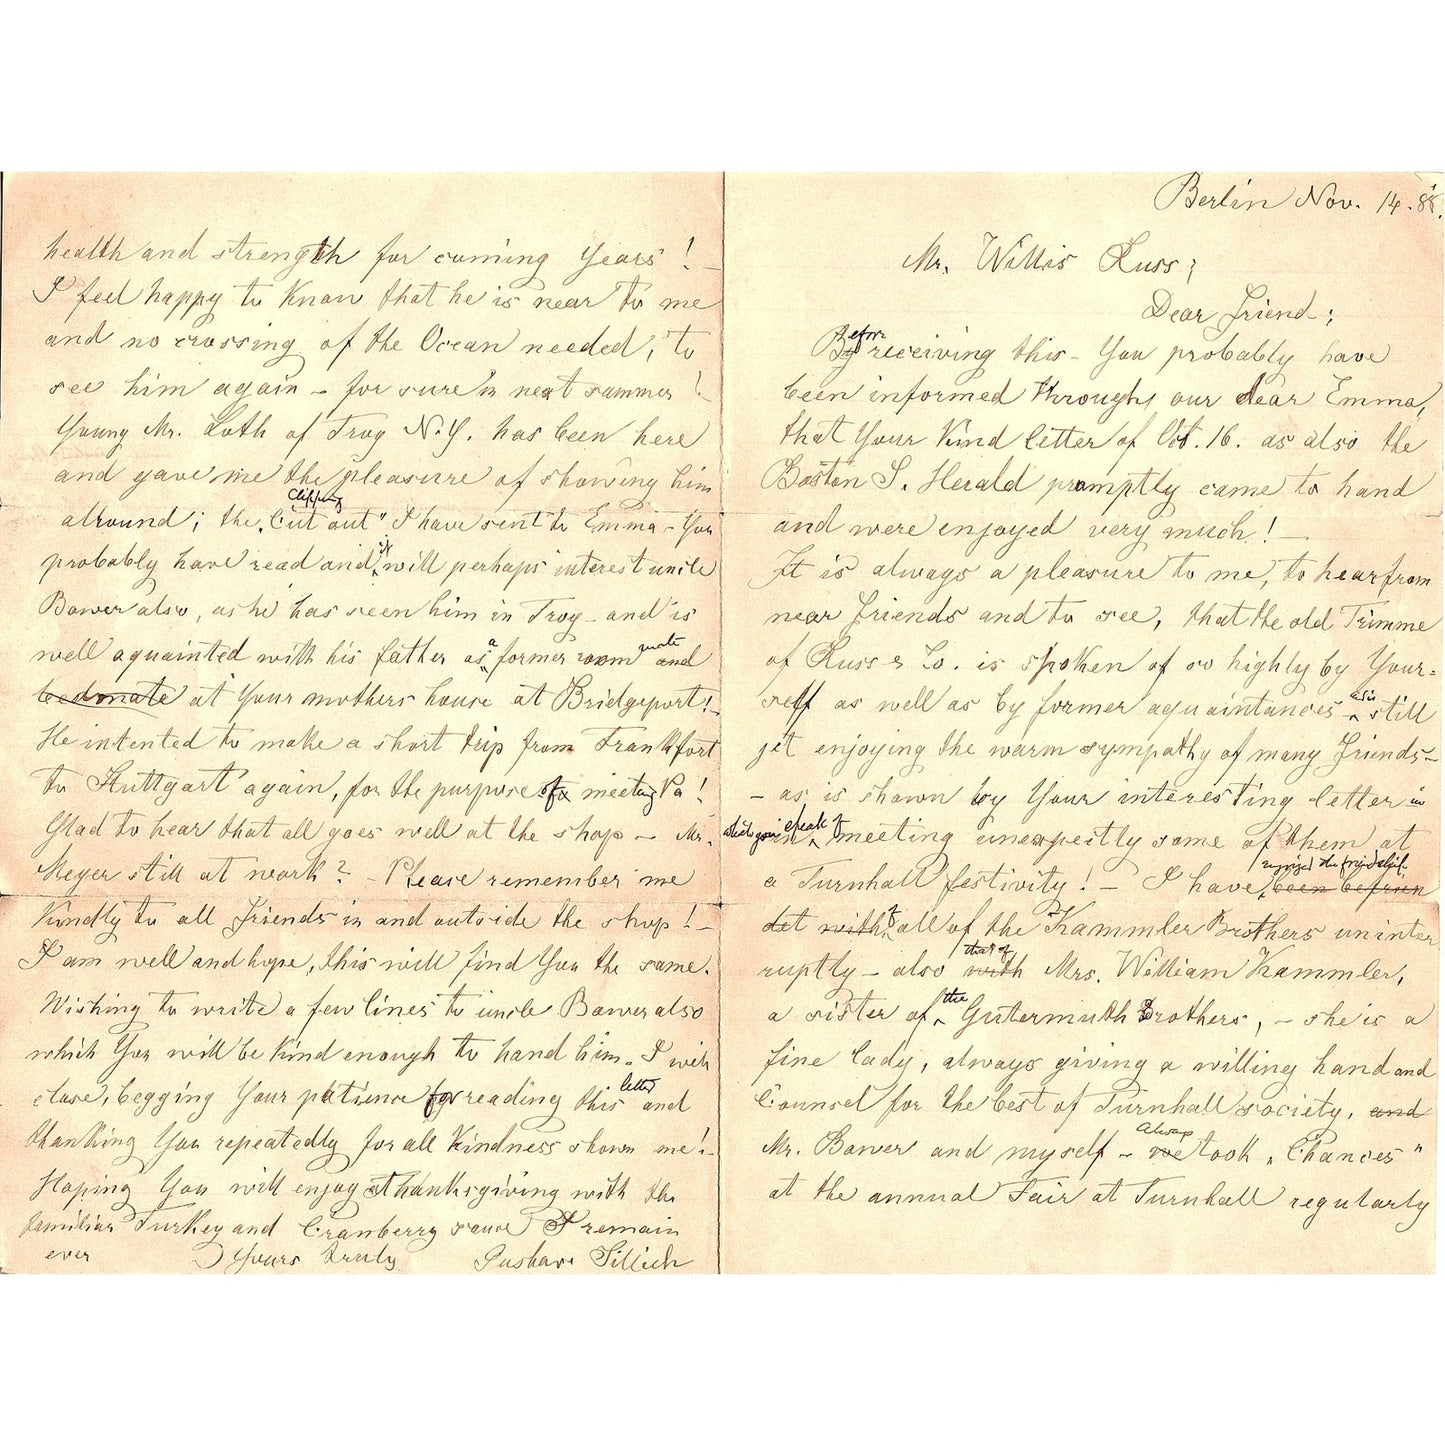 Berlin Nov. 14. 88.
Mr. Willis Russ;
Dear Friend;
Before receiving this - You probably have
been informed through our dear Emma,
that Your Kind letter of Oct. 16. as also the
Boston S. Herald promptly came to hand
and were enjoyed very much! —
It is always a pleasure to me, to hear from
near friends and to see, that the old Trimme
of Russ & Co. is spoken of so highly by Your=
self as well as by former aquaintances still
jet enjoying the warm sympathy of many friends -
- as is shown by Your interesting letter in
which you speak of meeting unexpectly some of them at
a Turnhall festivity! - I have enjoyed the friendship been befriun
det with of all of the Kammler Brothers uninter
ruptly - also that of with Mrs. William Kammler,
a sister of the Gutermuth Brothers, - she is a
fine lady, always giving a willing hand and
Counsel for the best of Turnhall society, and
Mr. Bower and myself - always we took „Chances"
at the annual Fair at Turnhall regularly
health and strength for coming Years! -
I feel happy to Know that he is near to me
and no crossing of the Ocean needed, to
see him again - for sure in next summer!
Young Mr. Loth of Troy N.Y. has been here
and gave me the pleasure of showing him
alround; the „Cut out" Clipping I have sent to Emma - You
probably have read and it will perhaps interest uncle
Bower also, as he has seen him in Troy - and is
well aquainted with his father as a former room mate and
bedomate at Your mothers house at Bridgeport! -
He intented to make a short trip from Frankfort
to Stuttgart again, for the purpose of meeting Pa!
Glad to hear that all goes well at the shop - Mr.
Meyer still at work? - Please remember me
Kindly to all friends in and outside the shop! -
I am well and hope, this will find You the same.
Wishing to write a few lines to uncle Bower also
which You will be Kind enough to hand him. I will
close, begging Your patience for reading this letter and
thanking You repeatedly for all Kindness shown me! -
Hoping You will enjoy thanksgiving with the
familiar Turkey and Cranberry sauce I remain
ever Yours truly Gustave Sillich